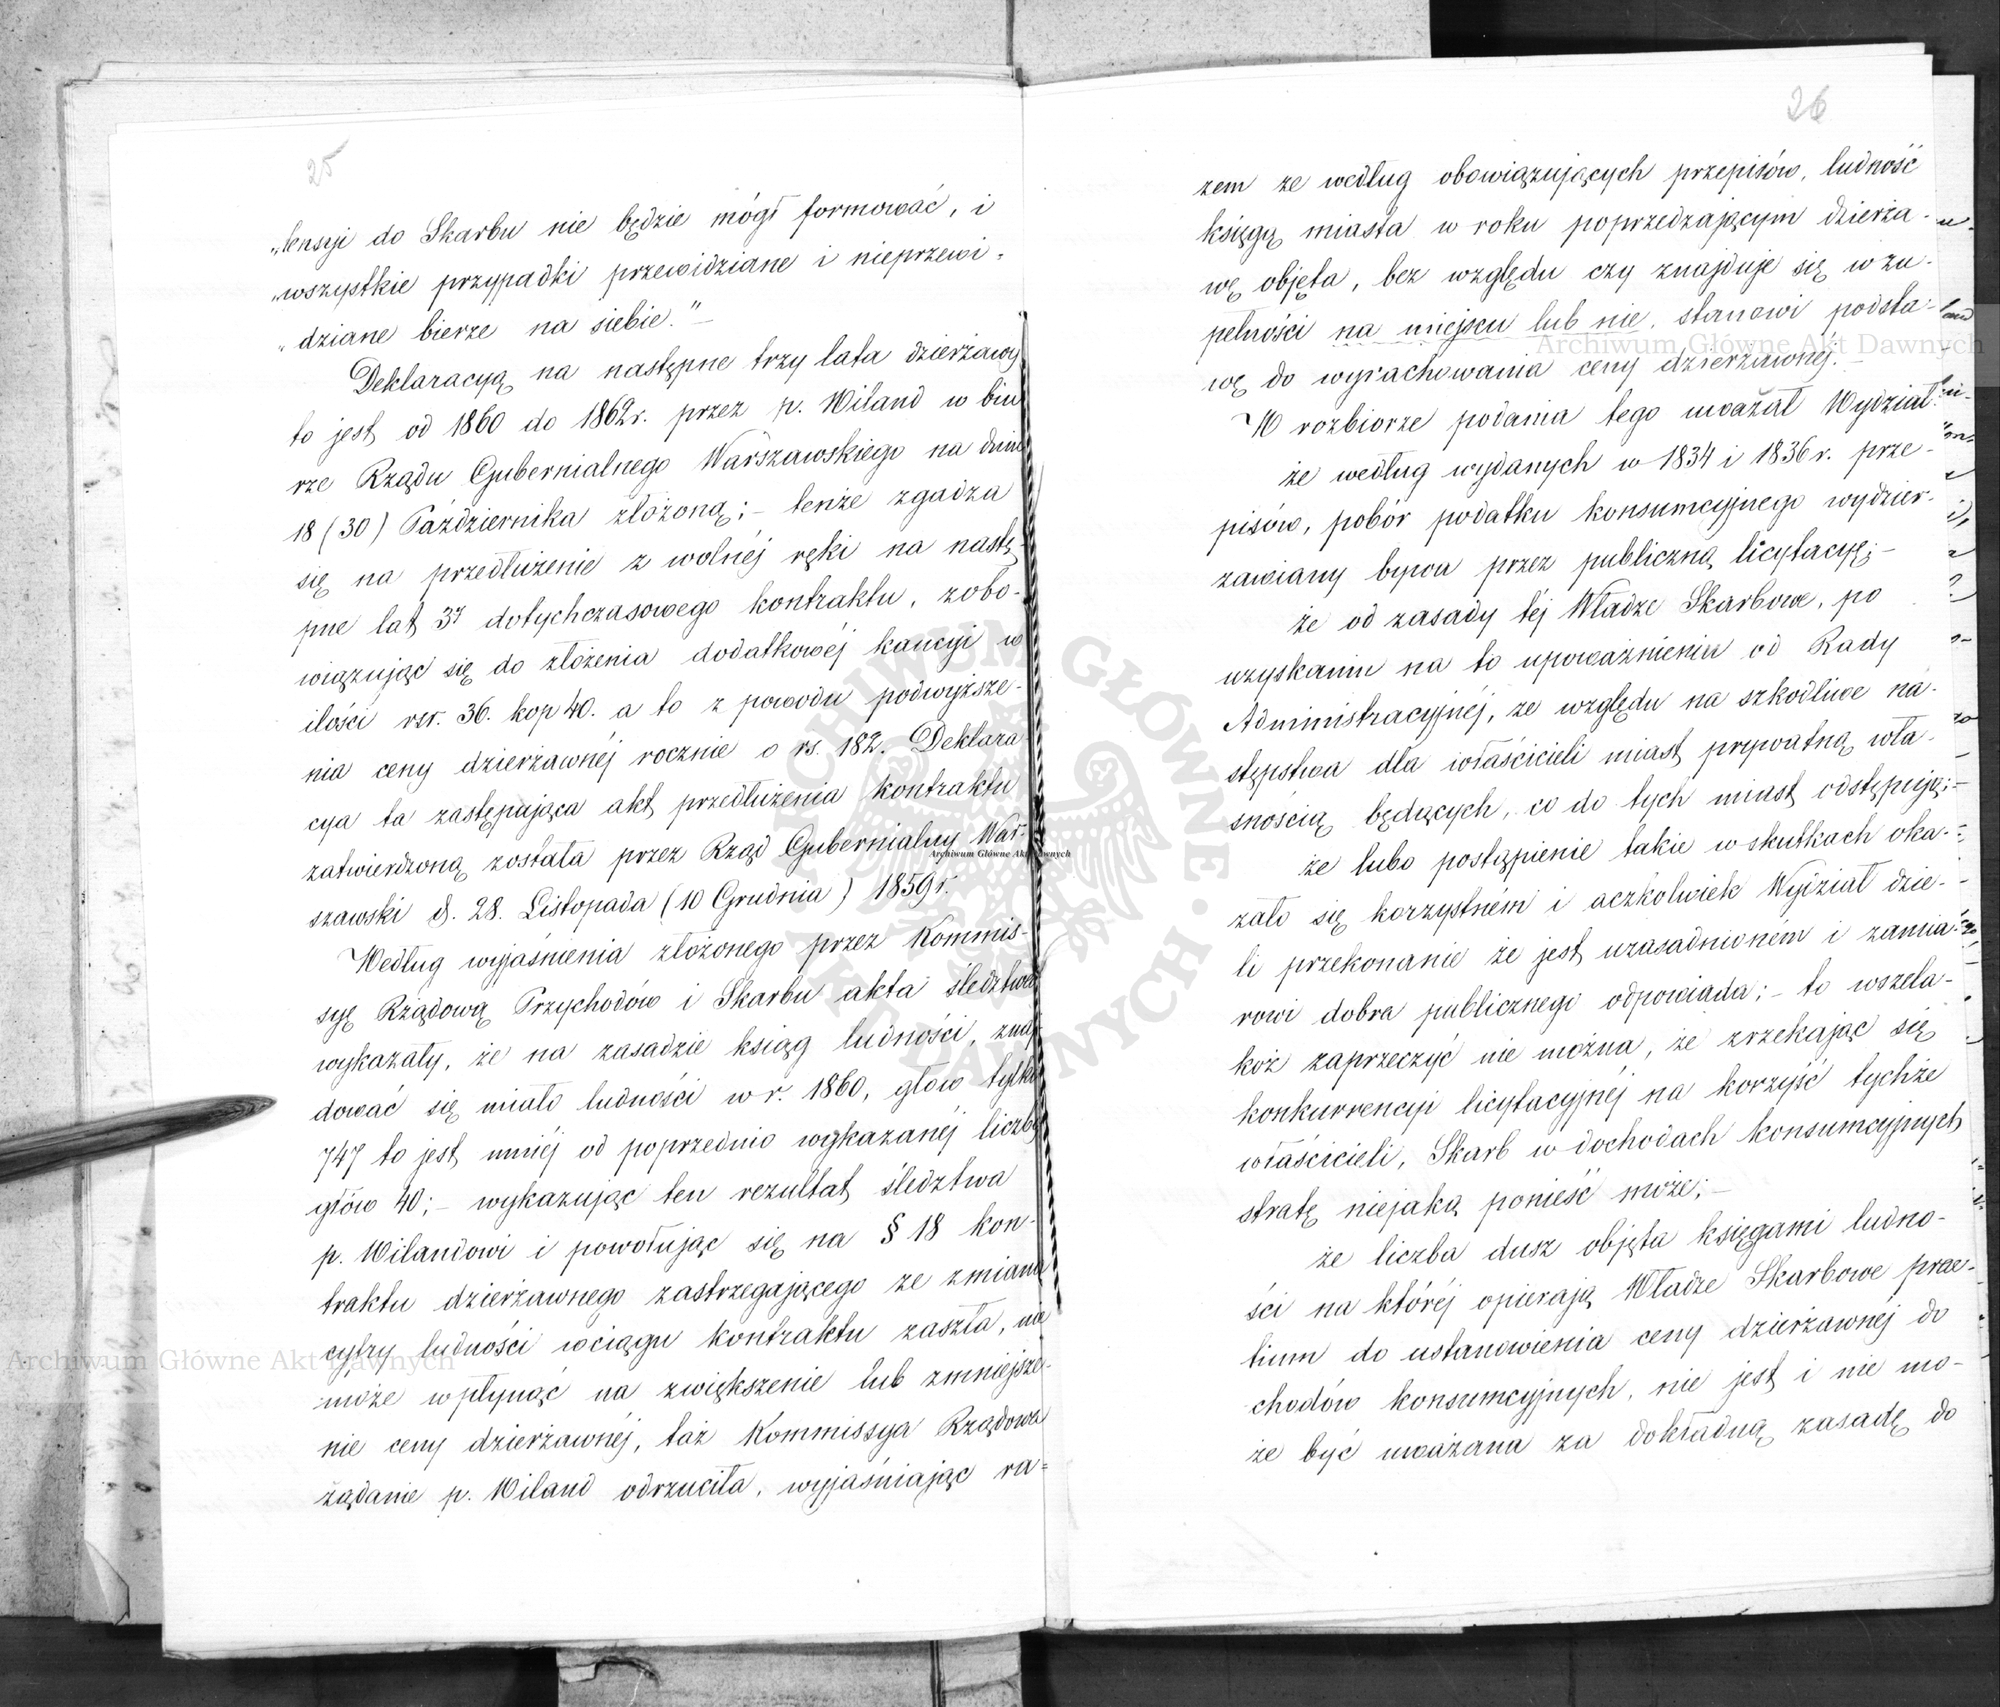 25
„tensyi do Skarbu nie będzie mógł formować, i
„wszystkie przypadki przewidziane i nieprzewi-
„dziane bierze na siebie."—
Deklaracyą na następne trzy lata dzierżawy
to jest od 1860 do 1862 r. przez p. Wiland w biu
rze Rządu Gubernialnego Warszawskiego na dniu
18 (30) Października złożoną;- tenże zgadza
się na przedłużenie z wolnéj ręki na nastę-
pne lat 3y dotychczasowego kontraktu, zobo-
wiązując się do złożenia dodatkowéj kaucyi w
ilości rsr. 36. kop 40. a to z powodu podwyższe-
nia ceny dzierżawnéj rocznie o rs. 182. Deklara
cya ta zastępująca akt przedłużenia kontraktu
zatwierdzoną została przez Rząd Gubernialny War-
szawski d. 28. Listopada (10 Grudnia) 1859 r.
Według wyjaśnienia złożonego przez Kommis-
syę Rządową Przychodów i Skarbu akta śledztwa
wykazały, że na zasadzie ksiąg ludności, znaj
dować się miało ludności w r. 1860, głów tylko
747 to jest mniéj od poprzednio wykazanéj liczby
głów 40;- wykazując ten rezultat śledztwa
p. Wilandowi i powołując się na § 18 kon-
traktu dzierżawnego zastrzegającego że zmiana
cyfry ludności wciągu kontraktu zaszła, nie
może wpłynąć na zwiększenie lub zmniejsze-
nie ceny dzierżawnéj, taż Kommissya Rządowa
żądanie p. Wiland odrzuciła, wyjaśniając ra=
26
zem że według obowiązujących przepisów, ludność
księgą miasta w roku poprzedzającym dzierża-
wę objęta, bez względu czy znajduje się w zu-
pełności na miejscu lub nie, stanowi podsta-
wę do wyrachowania ceny dzierżawnéj.—
W rozbiorze podania tego uważał Wydział:
że według wydanych w 1834 i 1836 r. prze-
pisów, pobór podatku konsumcyjnego wydzier-
zawiany bywa przez publiczną licytacyę;—
że od zasady téj Władze Skarbowe, po
uzyskaniu na to upoważnieniu od Rady
Administracyjnéj, ze względu na szkodliwe na-
stępstwa dla właścicieli miast prywatną wła-
snością będących, co do tych miast odstępują;—
że lubo postąpienie takie w skutkach oka-
zało się korzystném i aczkolwiek Wydział dzie-
li przekonanie że jest uzasadnionem i zamia-
rowi dobra publicznego odpowiada;- to wszela-
koż zaprzeczyć nie można, że zrzekając się
konkurrencyi licytacyjnéj na korzyść tychże
właścicieli, Skarb w dochodach konsumcyjnych
stratę niejaką ponieść może;—
że liczba dusz objęta księgami ludno-
ści na któréj opierają Władze Skarbowe prae-
tium do ustanowienia ceny dzierżawnéj do
chodów konsumcyjnych, nie jest i nie mo-
że być uważana za dokładną zasadę do
Archiwum Główne Akt Dawnych
Archiwum Główne Akt Dawnych
Archiwum Główne Akt Dawnych
ARCHIWUM GŁÓWNE AKT DAWNYCH